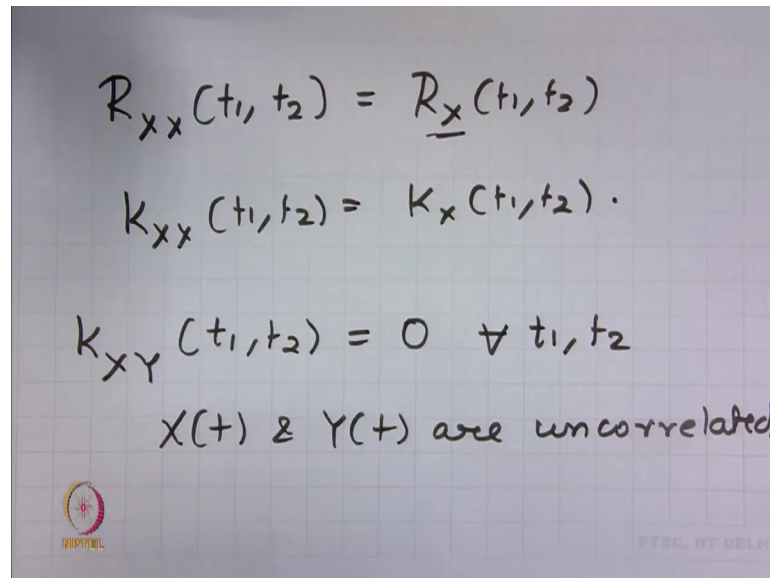 R_XX (t1, t2) = R_X (t1, t2)
K_XX (t1, t2) = K_X (t1, t2) .
K_XY (t1, t2) = 0 ∀ t1, t2
X(t) & Y(t) are uncorrelated
NPTEL
ETSC, IIT DELHI